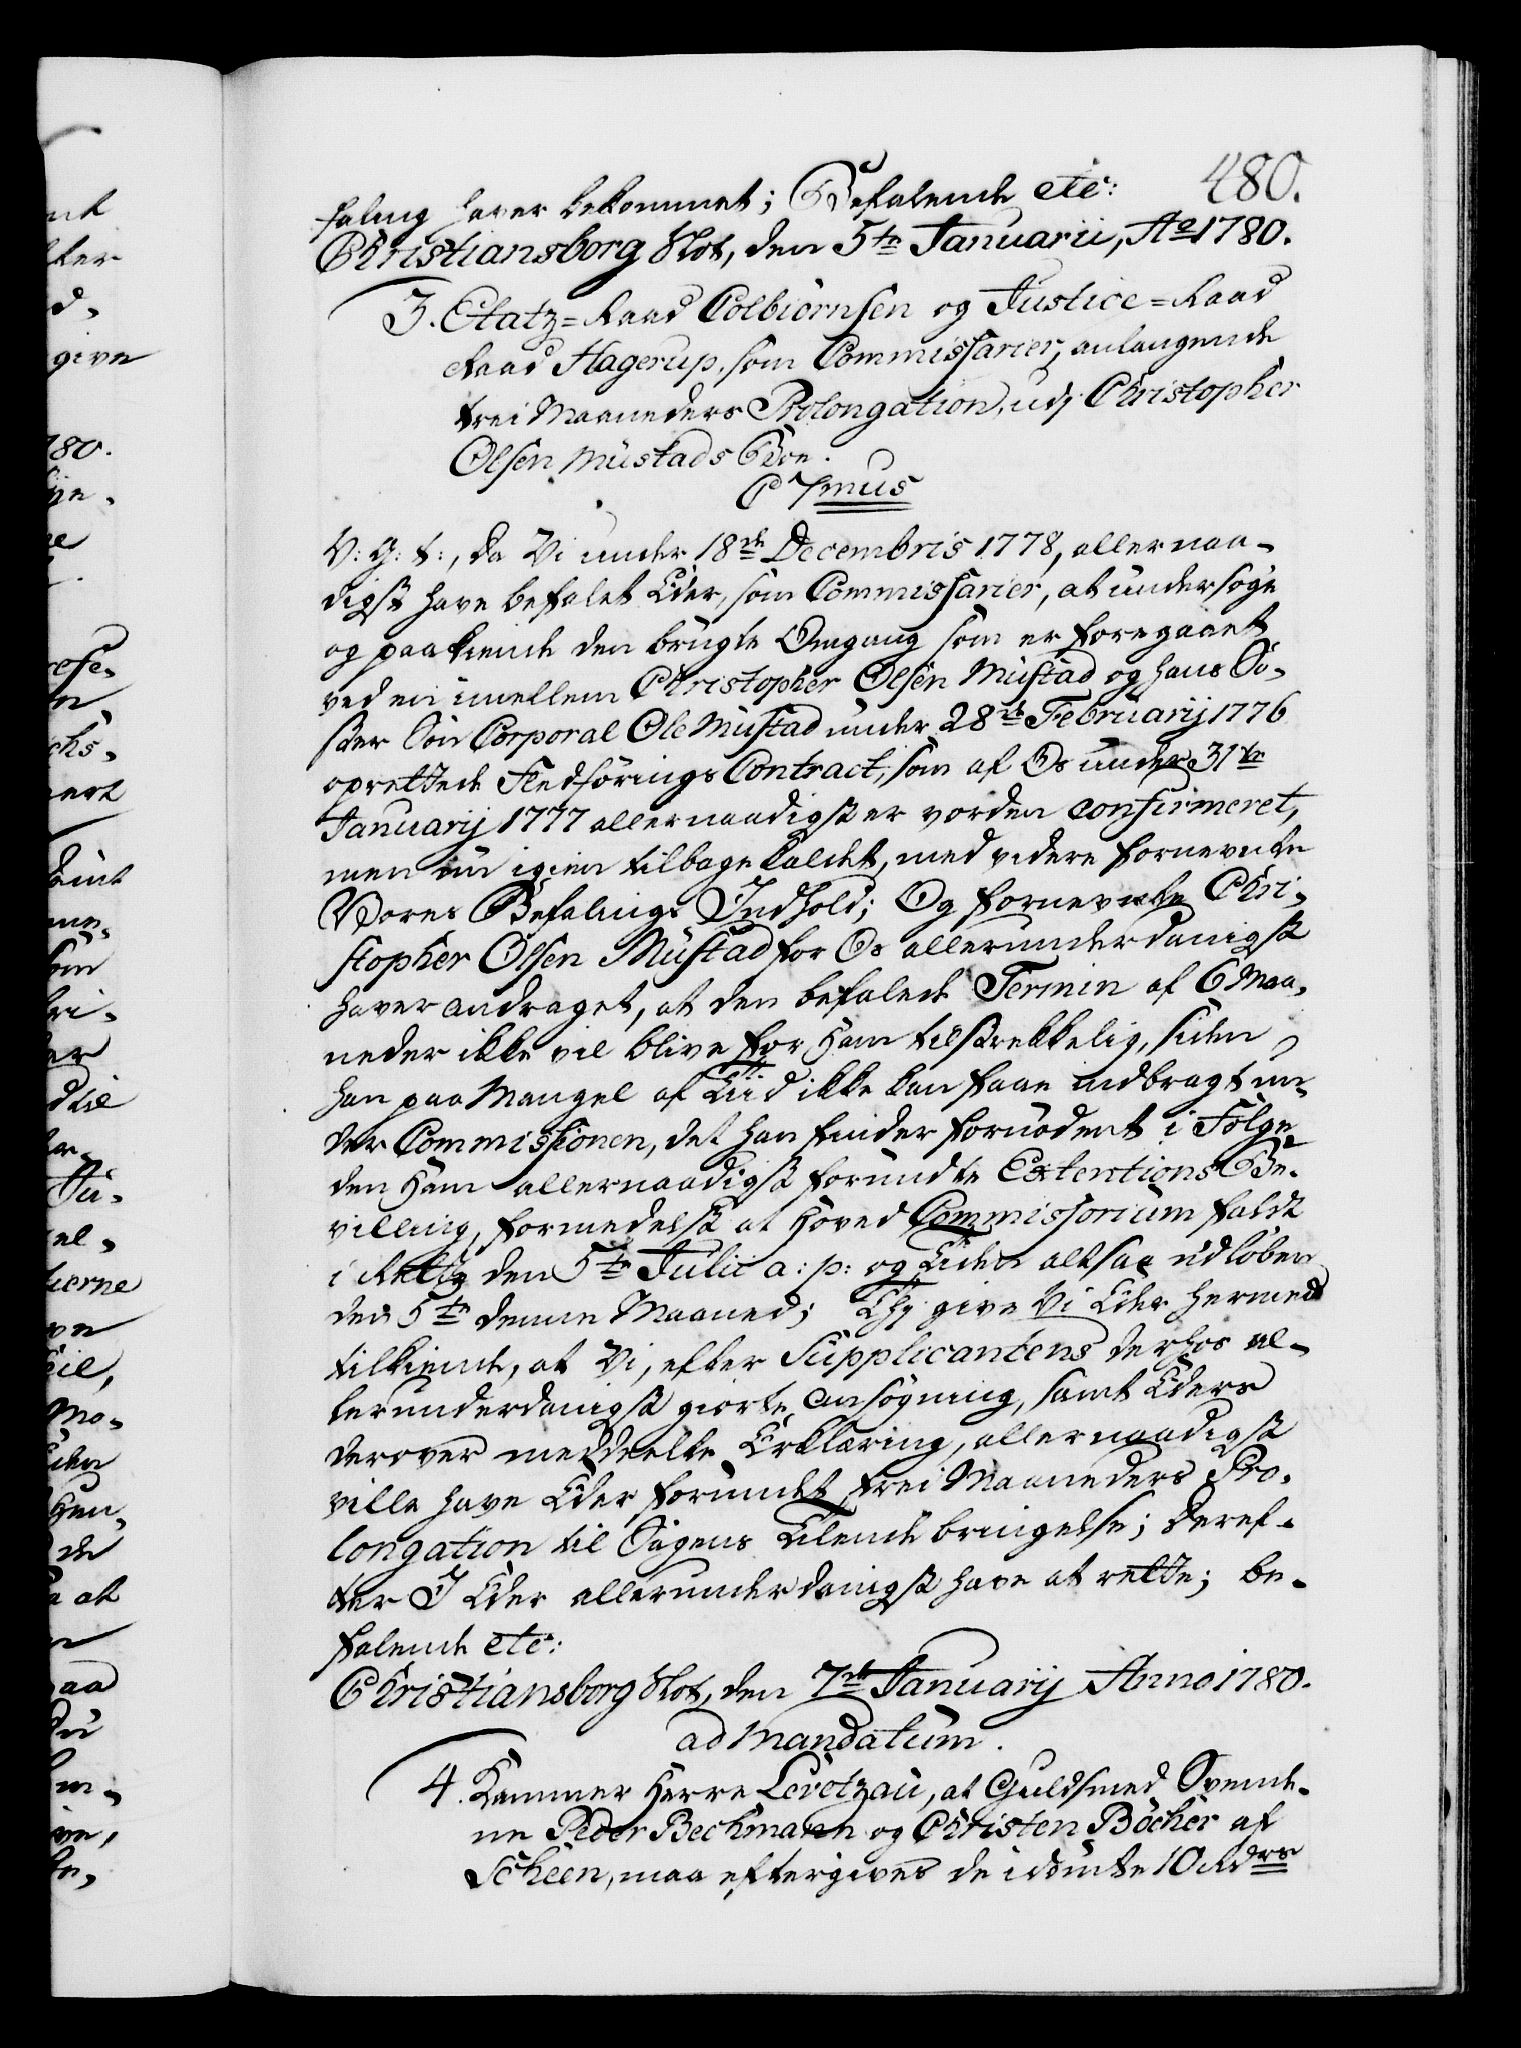 480.
faling haver bekommet; Befalende etc:
Christiansborg Slot, den 5te Januarii, Ao 1780.
3. Etatz=Raad Colbiørnsen og Justice=Raad
Raad Hagerup, som Commissarier, anlangende
trei Maaneders Prolongation, udj Christopher
Olsen Mustads
C 7mus
V: G: t:, da Vi under 18de Decembris 1778, allernaa-
digst have befalet Eder, som Commissarier, at undersøge
og paakiende den brugte Omgang som er foregaaet
ved en imellem Christopher Olsen Mustad og hans Sø-
ster Søn Corporal Ole Mustad under 28de Februarij 1776
oprettede Fledførings Contract, som af Os under 31te
Januarij 1777 allernaadigst er vorden confirmeret,
men nu igien tilbage kaldet, med videre fornevnte
Vores Befalings Indhold; Og fornevnte Chri-
stopher Olsen Mustad for Os allerunderdanigst
haver andraget, at den befalede Termin af 6 Maa-
neder ikke vil blive for Ham tilstrekkelig, siden
han paa Mangel af Tiid ikke kan faae indbragt un-
der Commissionen, det han finder fornødent i Følge
den Ham allernaadigst forundte Extentions Be-
villing, formedelst at Hoved Commissorium faldt
i Rette den 5te Julii a: p: og Tiden altsaa udløber
den 5te denne Maaned; Thj give Vi Eder hermed
tilkiende, at Vi, efter Supplicantens derhos al-
lerunderdanigst giorte Ansøgning, samt Eders
derover meddeelte Erklæring, allernaadigst
ville have Eder forundt trei Maaneders Pro-
longation til Sagens Tilende bringelse; Deref-
ter I Eder allerunderdanigst have at rette; be-
falende etc:
Christiansborg Slot, den 7de Januarij Anno 1780.
ad Mandatum.
4. Kammer Herre Levetzau, at Guldsmed Svende-
ne Peder Beckmann og Christen Böcher af
Scheen, maa eftergives de idømte 10 Rdrs